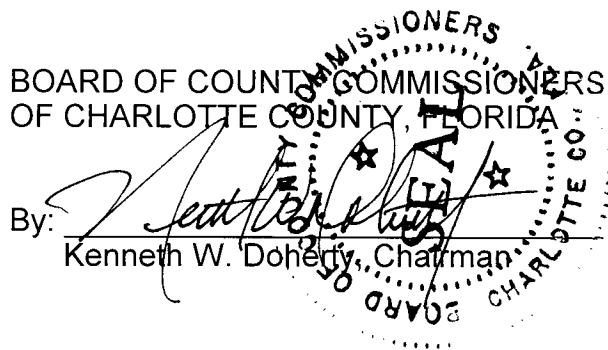 BOARD OF COUNTY COMMISSIONERS
OF CHARLOTTE COUNTY, FLORIDA
By:
Kenneth W. Doherty, Chairman
BOARD OF COUNTY COMMISSIONERS
CHARLOTTE CO. FLA.
SEAL